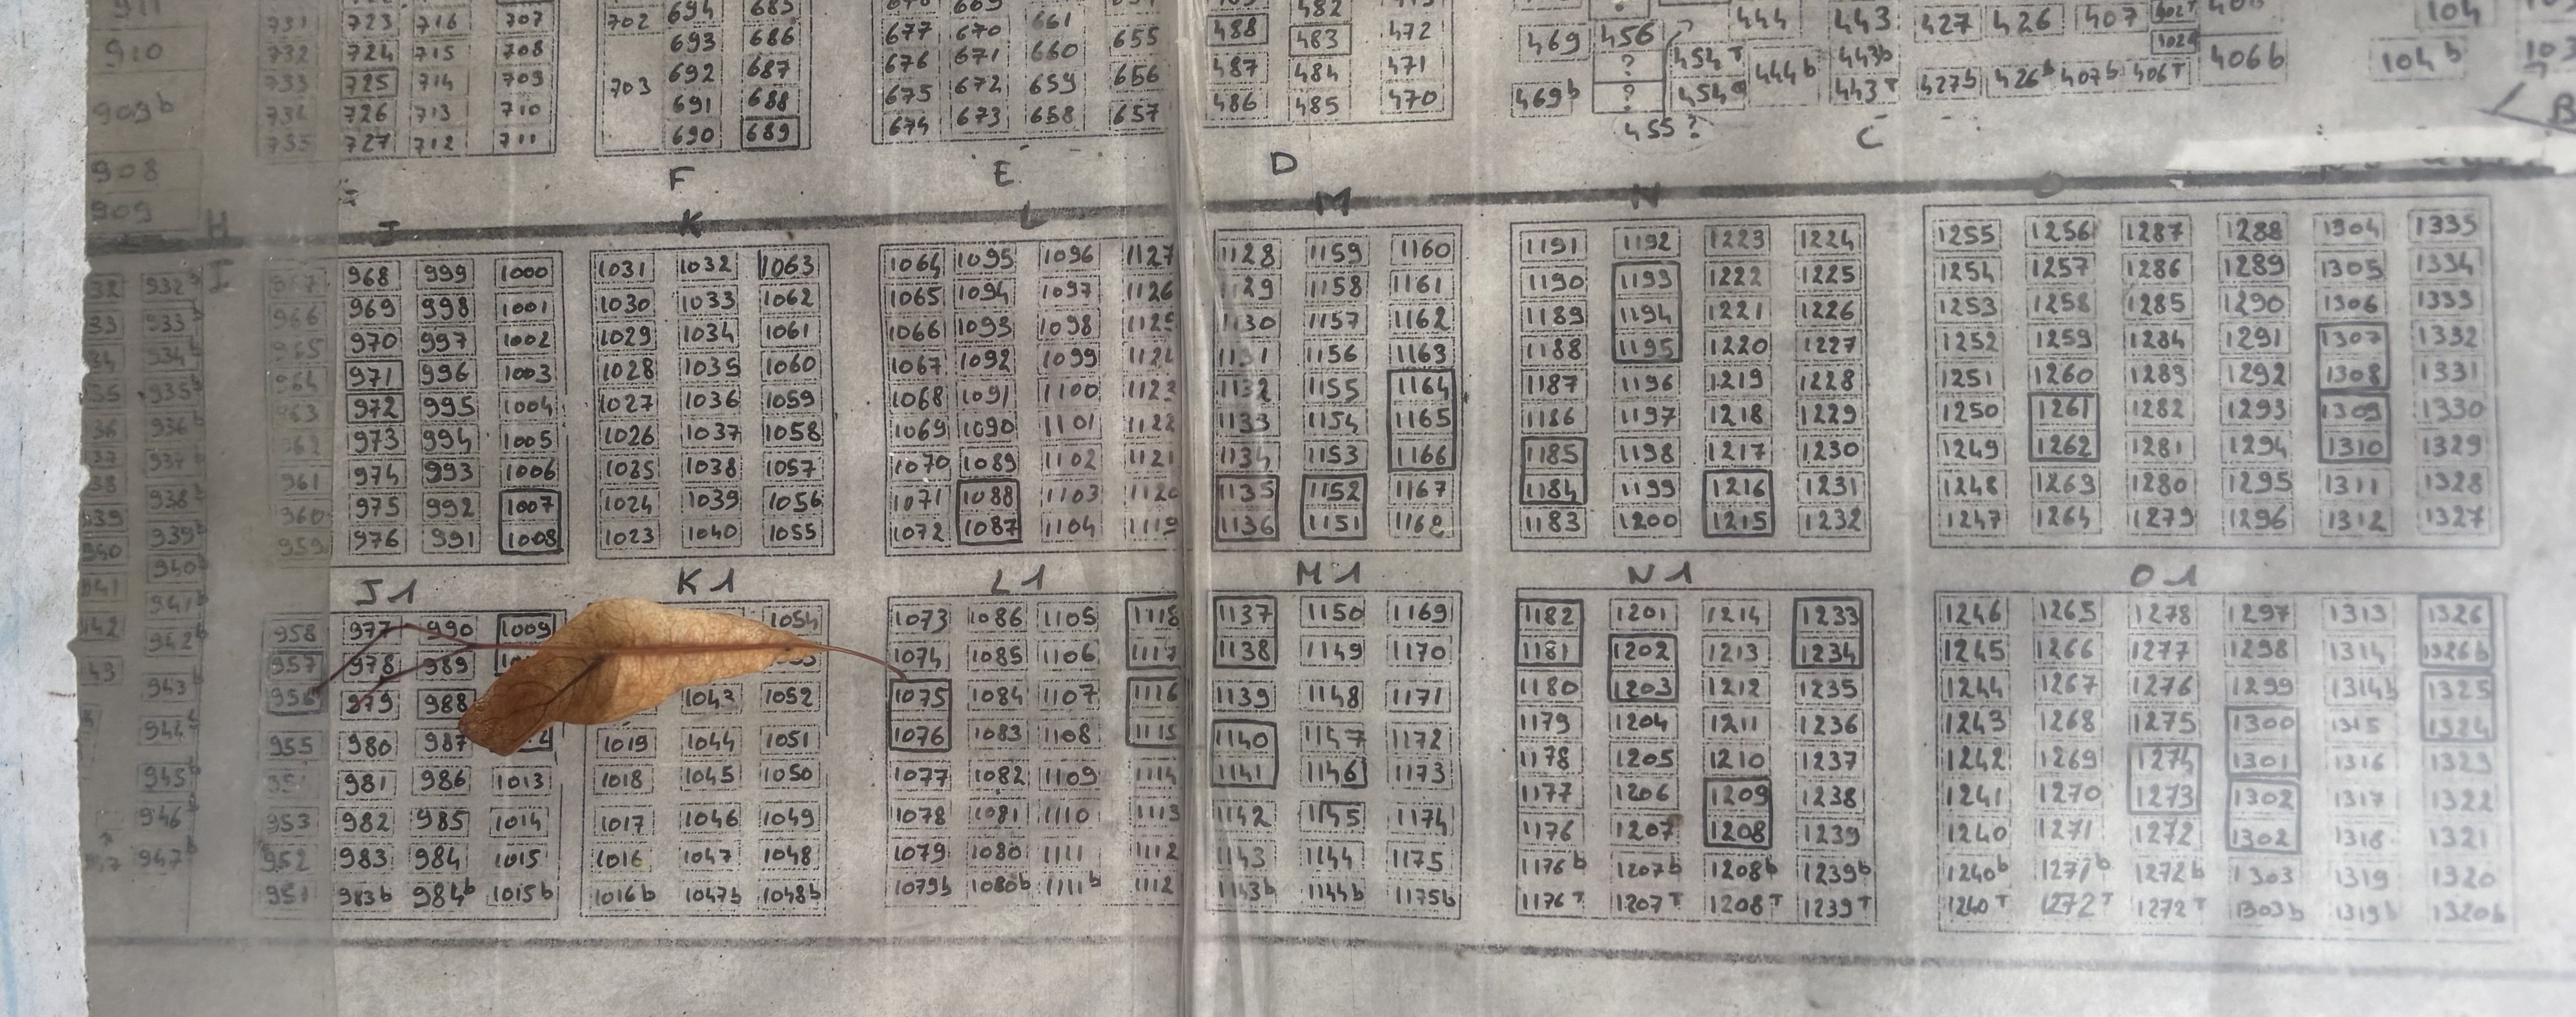 911 731 723 716 707 702 694 685 677 670 661 488 482 469 456 444 443 427 426 407 104
910 732 724 715 708 693 686 676 671 660 655 483 472 ? 454T 444b 443b 406b 104b
733 725 714 709 703 692 687 675 672 659 656 487 484 471 469b ? 454 443T 427b 426b 407b 406T
909b 726 713 710 691 688 674 673 658 657 486 485 470 455?
735 727 712 711 690 689
908 F E D C B
909
H J K L M N O
I
932b 968 999 1000 1031 1032 1063 1064 1095 1096 1127 1128 1159 1160 1191 1192 1223 1224 1255 1256 1287 1288 1304 1335
933b 966 969 998 1001 1030 1033 1062 1065 1094 1097 1126 1129 1158 1161 1190 1193 1222 1225 1254 1257 1286 1289 1305 1334
934b 965 970 997 1002 1029 1034 1061 1066 1093 1098 1125 1130 1157 1162 1189 1194 1221 1226 1253 1258 1285 1290 1306 1333
935b 964 971 996 1003 1028 1035 1060 1067 1092 1099 1124 1131 1156 1163 1188 1195 1220 1227 1252 1259 1284 1291 1307 1332
936b 963 972 995 1004 1027 1036 1059 1068 1091 1100 1123 1132 1155 1164 1187 1196 1219 1228 1251 1260 1283 1292 1308 1331
937b 962 973 994 1005 1026 1037 1058 1069 1090 1101 1122 1133 1154 1165 1186 1197 1218 1229 1250 1261 1282 1293 1309 1330
938b 961 974 993 1006 1025 1038 1057 1070 1089 1102 1121 1134 1153 1166 1185 1198 1217 1230 1249 1262 1281 1294 1310 1329
939 939b 960 975 992 1007 1024 1039 1056 1071 1088 1103 1120 1135 1152 1167 1184 1199 1216 1231 1248 1263 1280 1295 1311 1328
940 940b 959 976 991 1008 1023 1040 1055 1072 1087 1104 1119 1136 1151 1168 1183 1200 1215 1232 1247 1264 1279 1296 1312 1327
J1 K1 L1 M1 N1 O1
941b 958 977 990 1009 1054 1073 1086 1105 1118 1137 1150 1169 1182 1201 1214 1233 1246 1265 1278 1297 1313 1326
942b 957 978 989 1074 1085 1106 1117 1138 1149 1170 1181 1202 1213 1234 1245 1266 1277 1298 1314 1326b
943b 956 979 988 1043 1052 1075 1084 1107 1116 1139 1148 1171 1180 1203 1212 1235 1244 1267 1276 1299 1314b 1325
944b 955 980 987 1019 1044 1051 1076 1083 1108 1115 1140 1147 1172 1179 1204 1211 1236 1243 1268 1275 1300 1315 1324
945b 981 986 1013 1018 1045 1050 1077 1082 1109 1114 1141 1146 1173 1178 1205 1210 1237 1242 1269 1274 1301 1316 1323
946b 953 982 985 1014 1017 1046 1049 1078 1081 1110 1113 1142 1145 1174 1177 1206 1209 1238 1241 1270 1273 1302 1317 1322
947b 952 983 984 1015 1016 1047 1048 1079 1080 1111 1112 1143 1144 1175 1176 1207 1208 1239 1240 1271 1272 1302 1318 1321
951 983b 984b 1015b 1016b 1047b 1048b 1079b 1080b 1111b 1112 1143b 1144b 1175b 1176b 1207b 1208b 1239b 1240b 1271b 1272b 1303 1319 1320
1176T 1207T 1208T 1239T 1240T 1272T 1272T 1303b 1319b 1320b